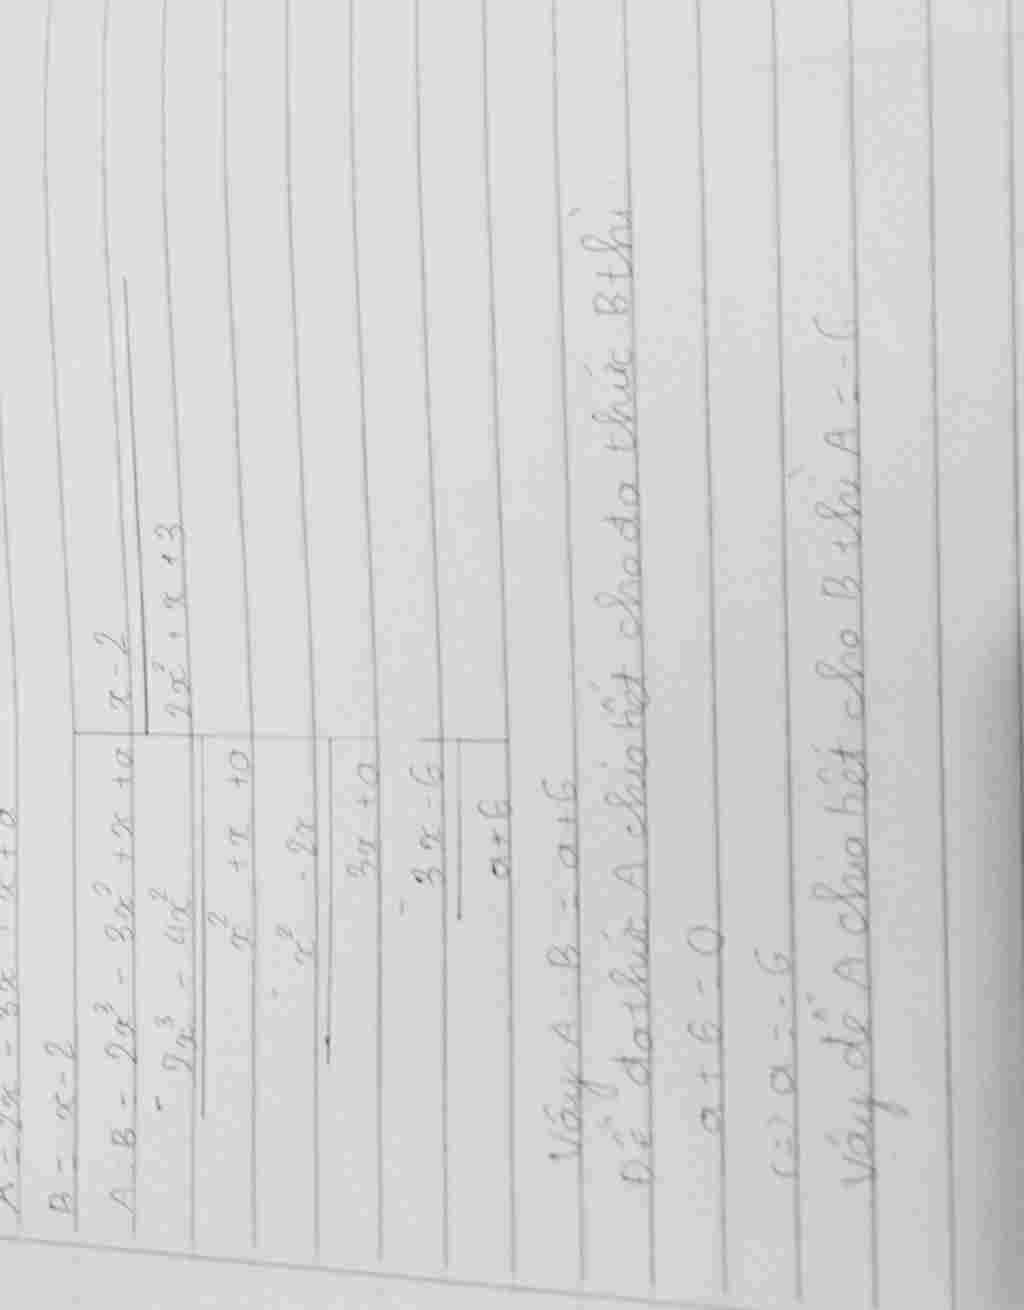 B = x - 2
A : B = 2x³ - 3x² + x + a | x - 2
- 2x³ - 4x² | 2x² + x + 3
x² + x + a
- x² - 2x
3x + a
- 3x - 6
a + 6
Vậy A : B = a + 6
Để đa thức A chia hết cho đa thức B thì
a + 6 = 0
(=) a = - 6
Vậy để A chia hết cho B thì A = - 6